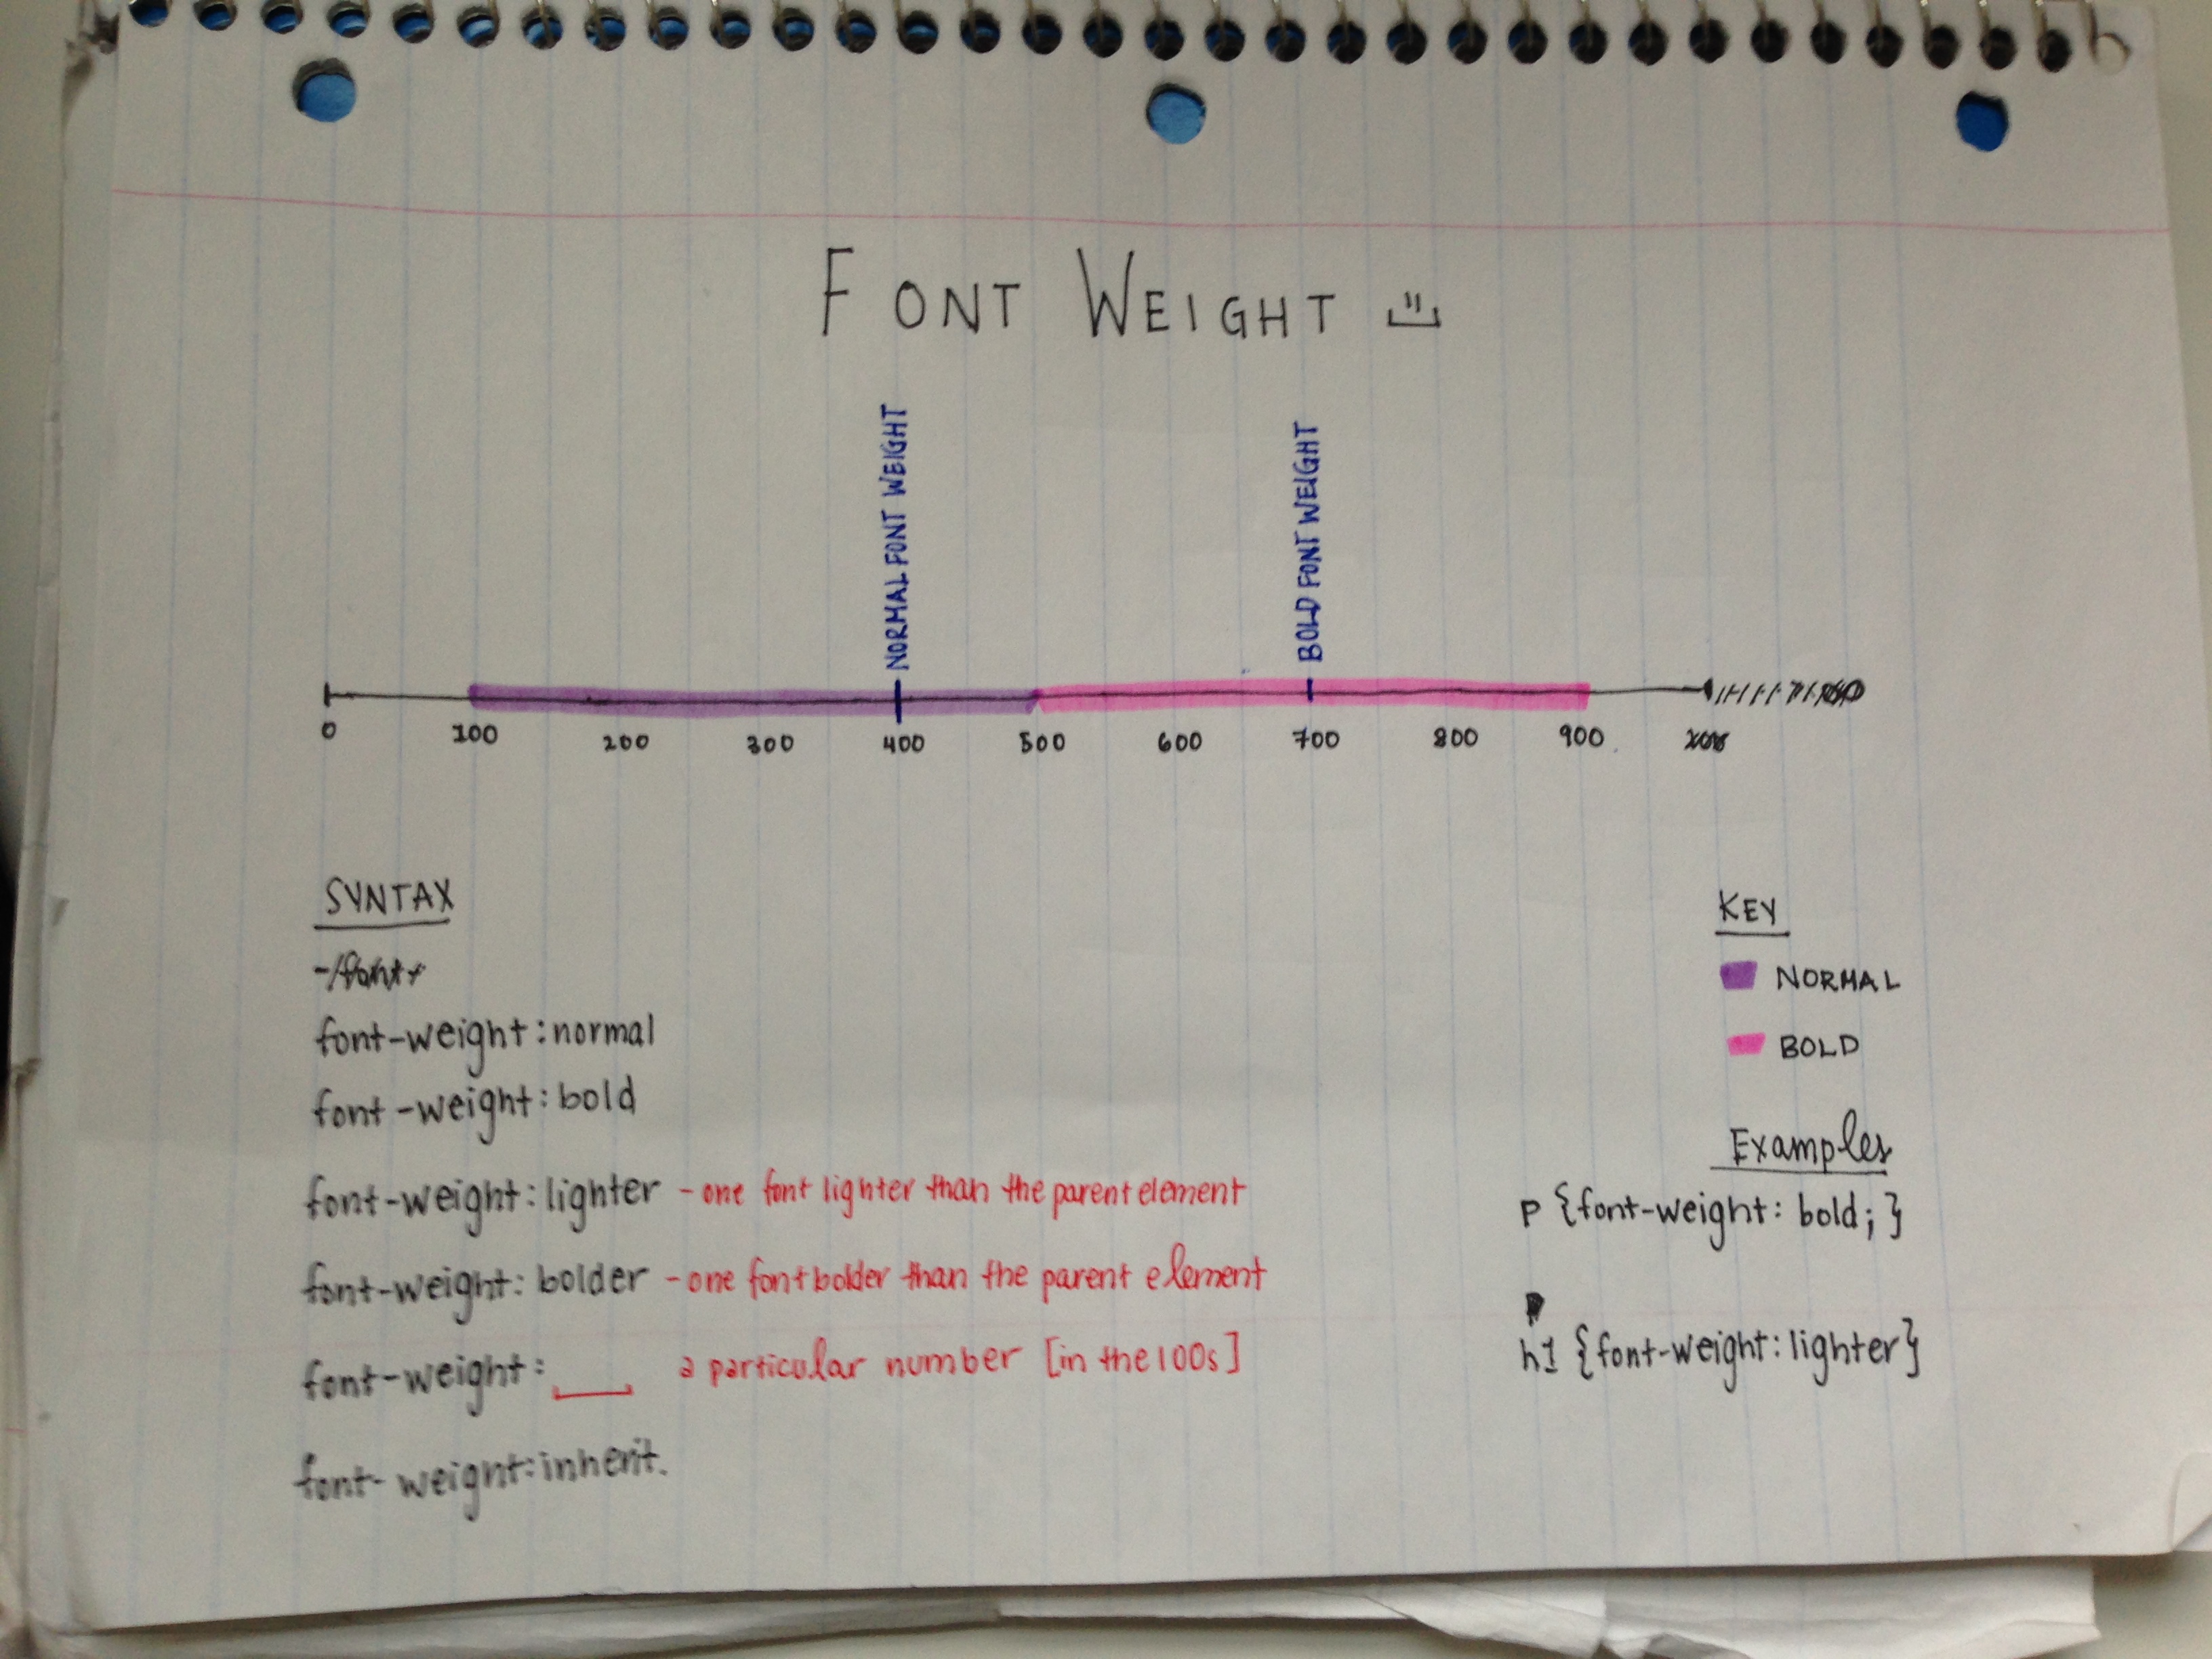 FONT WEIGHT
NORMAL FONT WEIGHT
BOLD FONT WEIGHT
0 100 200 300 400 500 600 700 800 900
SYNTAX
font-weight:normal
font-weight:bold
font-weight: lighter - one font lighter than the parent element
font-weight: bolder - one font bolder than the parent element
font-weight: a particular number [in the 100s]
font-weight:inherit.
KEY
NORMAL
BOLD
Examples
p {font-weight: bold; }
h1 {font-weight: lighter}